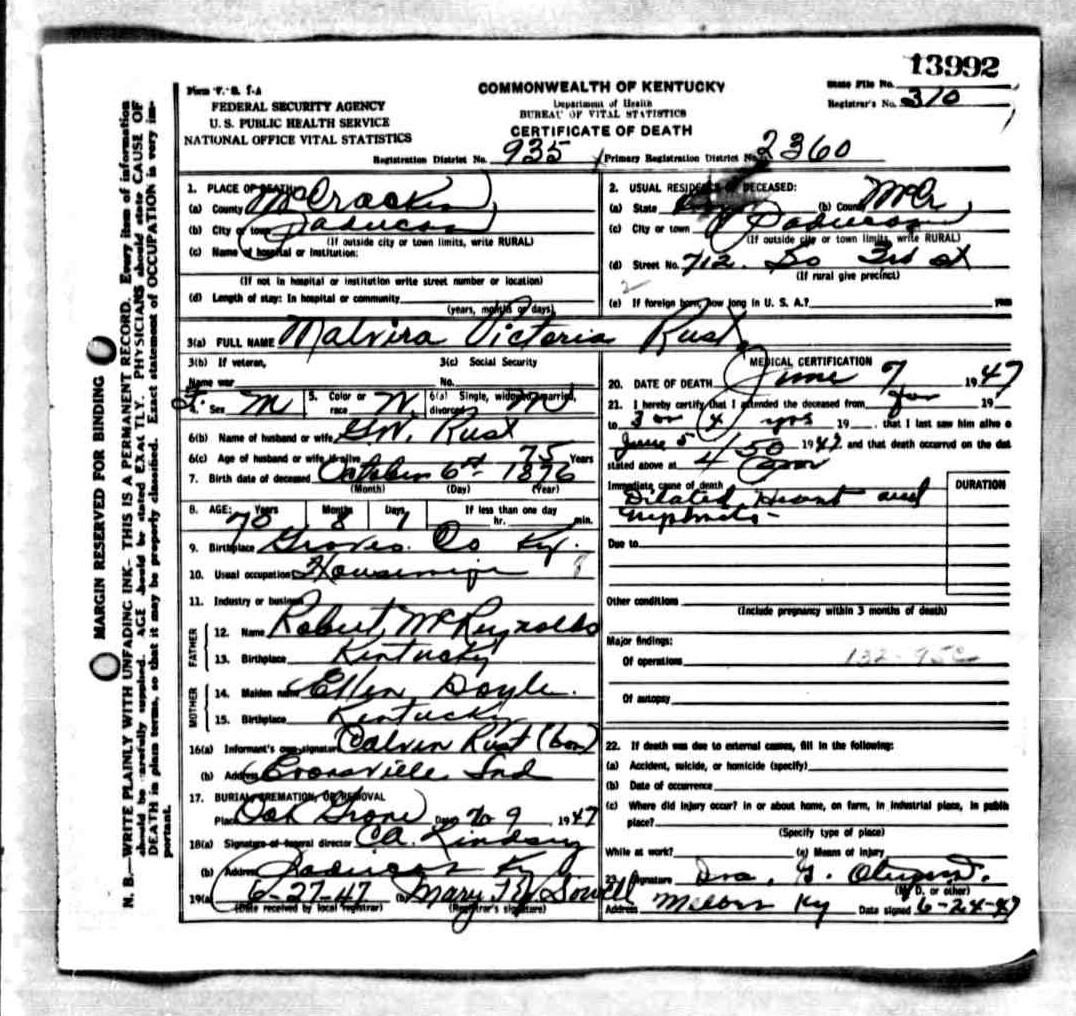 13992
Form V. S. 1-A
FEDERAL SECURITY AGENCY
U. S. PUBLIC HEALTH SERVICE
NATIONAL OFFICE VITAL STATISTICS
COMMONWEALTH OF KENTUCKY
Department of Health
BUREAU OF VITAL STATISTICS
CERTIFICATE OF DEATH
State File No.
Registrar's No. 310
Registration District No. 935 Primary Registration District No. 2360
MARGIN RESERVED FOR BINDING
N. B.—WRITE PLAINLY WITH UNFADING INK—THIS IS A PERMANENT RECORD. Every item of information
should be carefully supplied. AGE should be stated EXACTLY. PHYSICIANS should state CAUSE OF
DEATH in plain terms, so that it may be properly classified. Exact statement of OCCUPATION is very im-
portant.
1. PLACE OF DEATH
(a) County McCracken
(b) City or town Paducah
(If outside city or town limits, write RURAL)
(c) Name of hospital or institution:
(If not in hospital or institution write street number or location)
(d) Length of stay: In hospital or community
(years, months or days)
2. USUAL RESIDENCE OF DECEASED:
(a) State (b) County McCr
(c) City or town Paducah
(If outside city or town limits, write RURAL)
(d) Street No. 712 So 3rd st
(If rural give precinct)
2
(e) If foreign born, how long in U. S. A.? years
3(a) FULL NAME Malvira Victoria Rust
3(b) If veteran,
Name war
3(c) Social Security
No.
4. Sex F M 5. Color or race W 6(a) Single, widowed, married, divorced M
6(b) Name of husband or wife G.W. Rust
6(c) Age of husband or wife if alive 75 Years
7. Birth date of deceased October 6th 1876
(Month) (Day) (Year)
8. AGE: Years Months Days If less than one day
70 8 1 hr. min.
9. Birthplace Graves Co Ky.
10. Usual occupation Housewife
11. Industry or business
FATHER
12. Name Robert McReynolds
13. Birthplace Kentucky
MOTHER
14. Maiden name Ellen Doyle.
15. Birthplace Kentucky
16(a) Informant's own signature Calvin Rust (son)
(b) Address Evansville Ind
17. BURIAL, CREMATION, OR REMOVAL
Place Oak Grove Date 6 9 1947
18(a) Signature of funeral director CA. Lindsey
(b) Address Paducah Ky
19(a) 6-27-47 (b) Mary M Sowell
(Date received by local registrar) (Registrar's signature)
MEDICAL CERTIFICATION
20. DATE OF DEATH June 7 1947
21. I hereby certify that I attended the deceased from for 19
to 3 or 4 yrs 19 that I last saw him alive o
June 5 1947 and that death occurred on the dat
stated above at 4 50 m
Immediate cause of death DURATION
Dilated Heart and
Nephritis -
Due to
Other conditions
(Include pregnancy within 3 months of death)
Major findings:
Of operations 132-95c
Of autopsy
22. If death was due to external causes, fill in the following:
(a) Accident, suicide, or homicide (specify)
(b) Date of occurrence
(c) Where did injury occur? in or about home, on farm, in industrial place, in public
place?
(Specify type of place)
While at work? (e) Means of injury
23. Signature
(M. D. or other)
Address Melber Ky Date signed 6-24-47